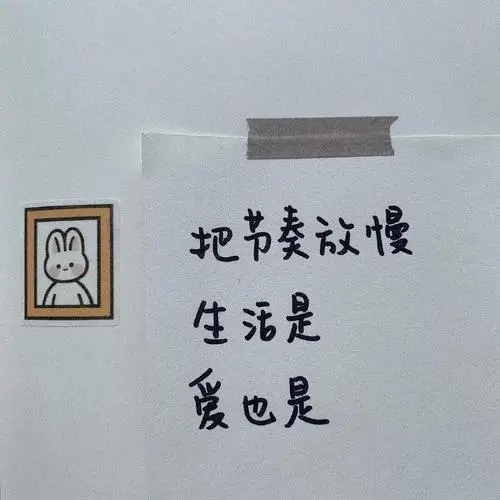 把节奏放慢
生活是
爱也是